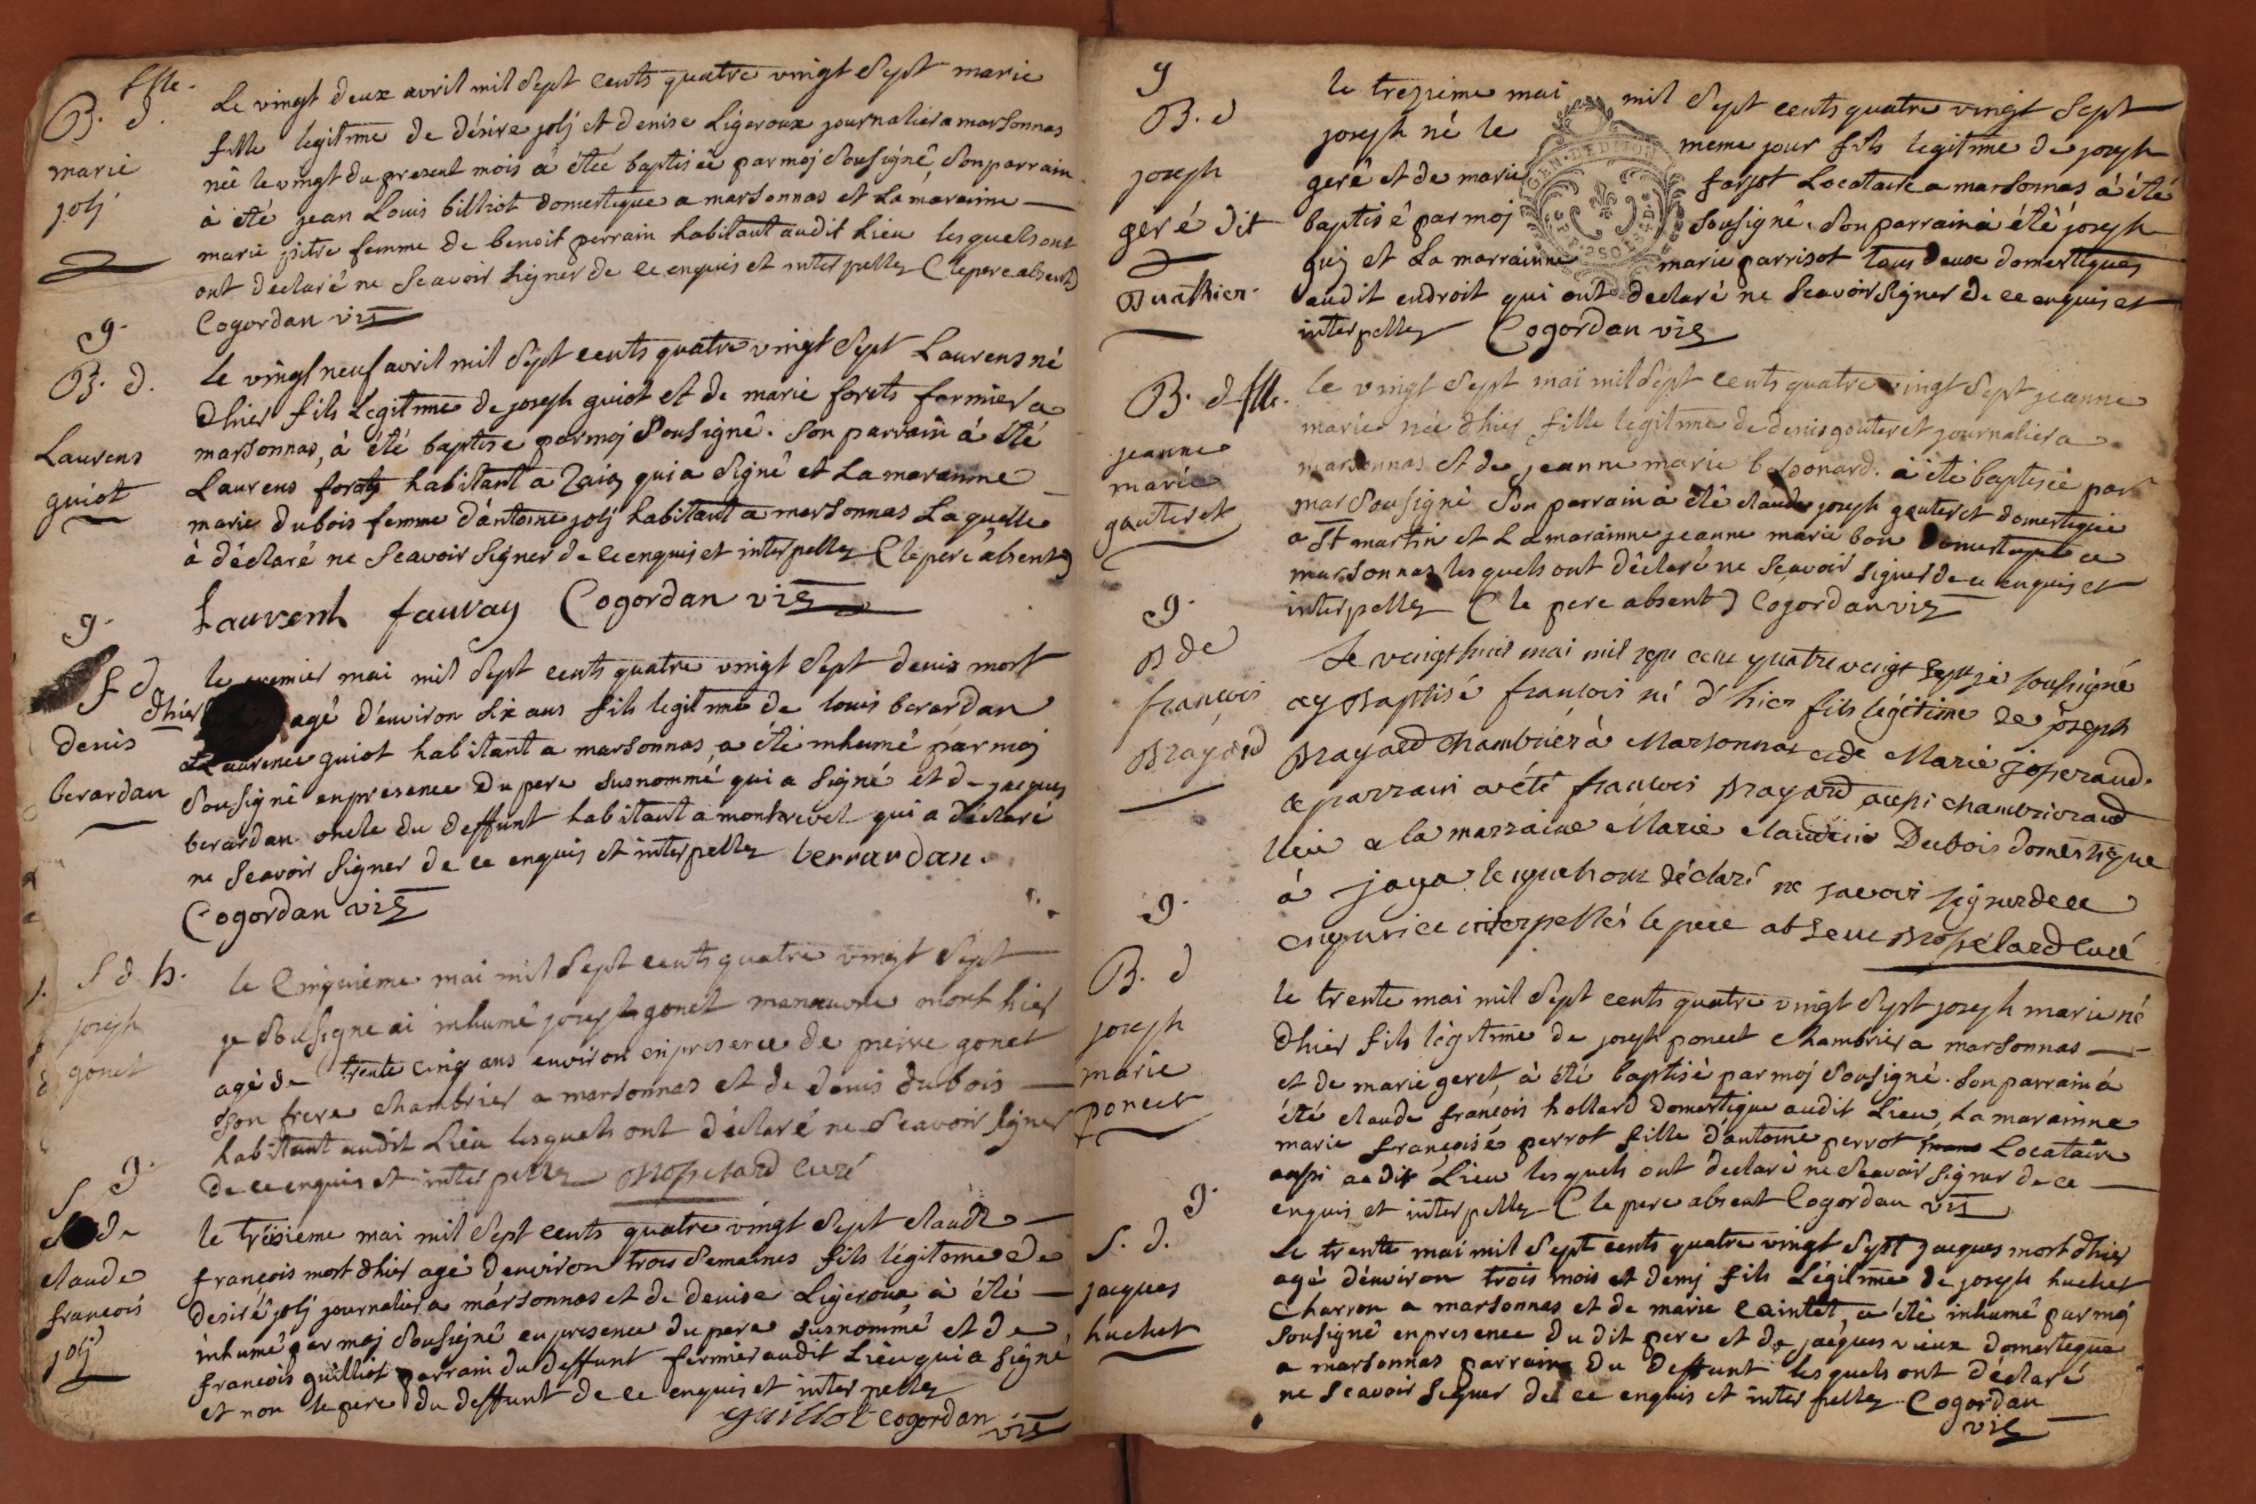 fille.
B. d.
marie
jolj
Le vingt deux avril mil sept cents quatre vingt sept marie
fille legitime de désire jolj et denise Ligeroux journalier a marsonnas
neê le vingt du present mois a êteé baptiseê par moj sousignê, son parrain
à êté jean Louis billiot domestique a marsonnas et La maraine
marie pitre femme de benoit perrain habitant audit Lieu lesquels ont
ont declaré ne Scavoir signer de ce enquis et interpellez (le pere absent)
Cogordan vic
g.
B. d.
Laurens
guiot
le vingt neuf avril mil sept cents quatre vingt sept Laurens né
dhier fils Legitime de joseph guiot et de marie forets fermier a
marsonnas, à été baptise par moj sousigné. son parrain á êté
Laurens forats habitant a qui a signé et La maraine
marie dubois femme dántoine jolj habitant a marsonnas Laquelle
à déclaré ne Scavoir signer de ce enquis et interpellez (le pere absent)
Laurent fauvay Cogordan vic
g.
S d
denis
berardan
le premier mai mil sept cents quatre vingt sept denis mort
dhier agé d'environ six ans fils legitime de louis berardan
Laurence guiot habitant a marsonnas, a été inhumé par moj
sousigné en presence du pere susnommé qui a signé et de jacques
berardan oncle du deffunt habitant a montrevel qui a déclaré
ne Scavoir signer de ce enquis et interpellez berrardan.
Cogordan vic
S d h.
joseph
gonet
le cinquieme mai mil sept cents quatre vingt sept
je sousigne ai inhumé joseph gonet manœuvre mort hier
agé de trente cinq ans environ en presence de pierre gonet
son frere chambrier a marsonnas et de denis dubois
habitant audit Lieu lesquels ont déclaré ne Scavoir signer
de ce enquis et interpellez curé
g.
S
de
claude
francois
jolj
le troisieme mai mil sept cents quatre vingt sept claude
françois mort dhier agé denviron trois semaines fils légitime de
desiré jolj journalier a marsonnas et de denise Ligeroux à êté
inhumé par moj sousigné en presence du pere susnommé et de
francois guilliot parrain du deffunt fermier audit Lieu qui a signé
et non le pere du deffunt de ce enquis et interpellez
guillot Cogordan
vic
g
B. d
joseph
geré dit
Buathier.
le trezieme mai mil sept cents quatre vingt sept
joseph né le meme jour fils legitime de joseph
geré et de marie farjot Locataire a marsonnas à été
baptisé par moj sousigné. son parrain a été joseph
guij et La marrainne marie parrisot tous deux domestiques
audit endroit qui ont declaré ne Scavoir signer de ce enquis et
interpellez Cogordan vic
B. d fille.
jeanne
marie
gauteret
le vingt sept mai mil sept cents quatre vingt sept jeanne
marie née dhier fille legitime de denis gouteret journalier a
marsonnas et de jeanne marie . a êté baptiseé par
moi sousigné son parrain à êté claude joseph gauteret domestique
a St martin et La marainne jeanne marie bon domestique a
marsonnas lesquels ont déclaré ne Scavoir signer de ce enquis et
interpellez (le pere absent) Cogordan vic
g.
B de
françois
Brayard
Le vingt huit mai mil sept cent quatre vingt sept je soussigné
ay Baptisé françois né d'hier fils légitime de joseph
Brayard chambrier à Marsonnas et de Marie
le parrain a été francois Brayard aussi chambrier aud
lieu et la marraine Marie Claudine Dubois domestique
à jaya lesquels ont déclaré ne savoir signer de ce
enquis et interpellés le pere absent curé
g.
B. d
joseph
marie
poncet
le trente mai mil sept cents quatre vingt sept joseph marie né
dhier fils légitime de joseph poncet chambrier a marsonnas
et de marie geret, à été baptisé par moj sousigné. son parrain á
été claude françois hollard domestique audit Lieu, La marainne
marie françoise perrot fille d'antoine perrot Locataire
aussi audit Lieu lesquels ont declaré ne Scavoir signer de ce
enquis et interpellez (le pere absent Cogordan vic
g.
S. d.
jacques
huchet
Le trente mai mil sept cents quatre vingt sept jacques mort dhier
agé d'environ trois mois et demj fils Légitime de joseph huchet
charron a marsonnas et de marie cointet, a été inhumé par moj
sousigné en presence du dit pere et de jacques vieux domestique
a marsonnas parrain du deffunt lesquels ont déclaré
ne Scavoir signer de ce enquis et interpellez Cogordan
vic